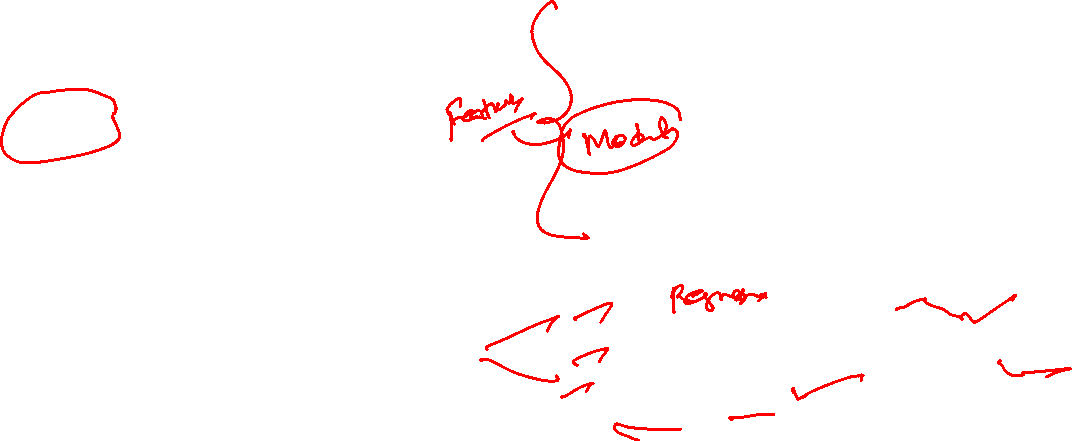 Features
Models
Regression